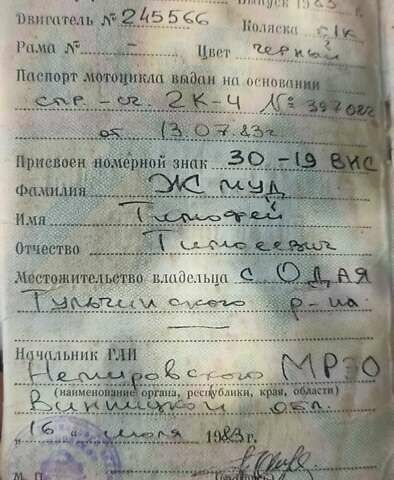 Выпуск 1983 г.
Двигатель № 245566 Коляска б/к
Рама № - Цвет черный
Паспорт мотоцикла выдан на основании
спр-сч. 2К-Ч № 397082
от 13.07.83г
Присвоен номерной знак 30-19 ВНС
Фамилия Жмуд
Имя Тимофей
Отчество Тимосеевич
Местожительство владельца с ОДАЯ
Тульчинского р-на.
Начальник ГАИ
Немировского МРЭО
(наименование органа, республики, края, области)
Винницкой обл
"16" июля 1983 г.
М. П.